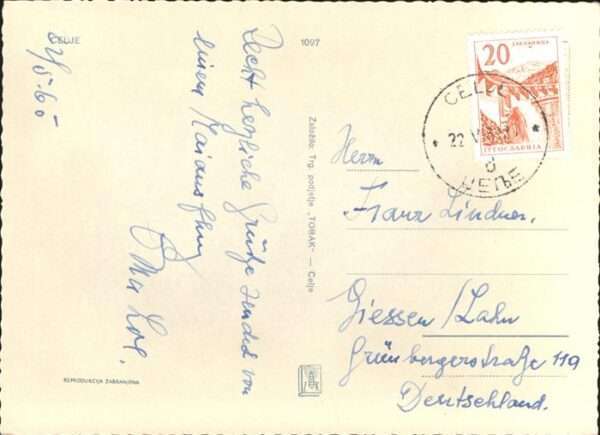 CELJE
22/5.60
1097
Recht herzliche Grüße sendet von
einem Maiausflug
Založilo: Trg. podjetje „TOBAK" — Celje
REPRODUKCIJA ZABRANJENA
20
JUGOSLAVIJA
CELJE
22 V
ЦЕЉЕ
Herrn
Franz Lindner.
Giessen/Lahn
Grünbergerstraße 119
Deutschland.